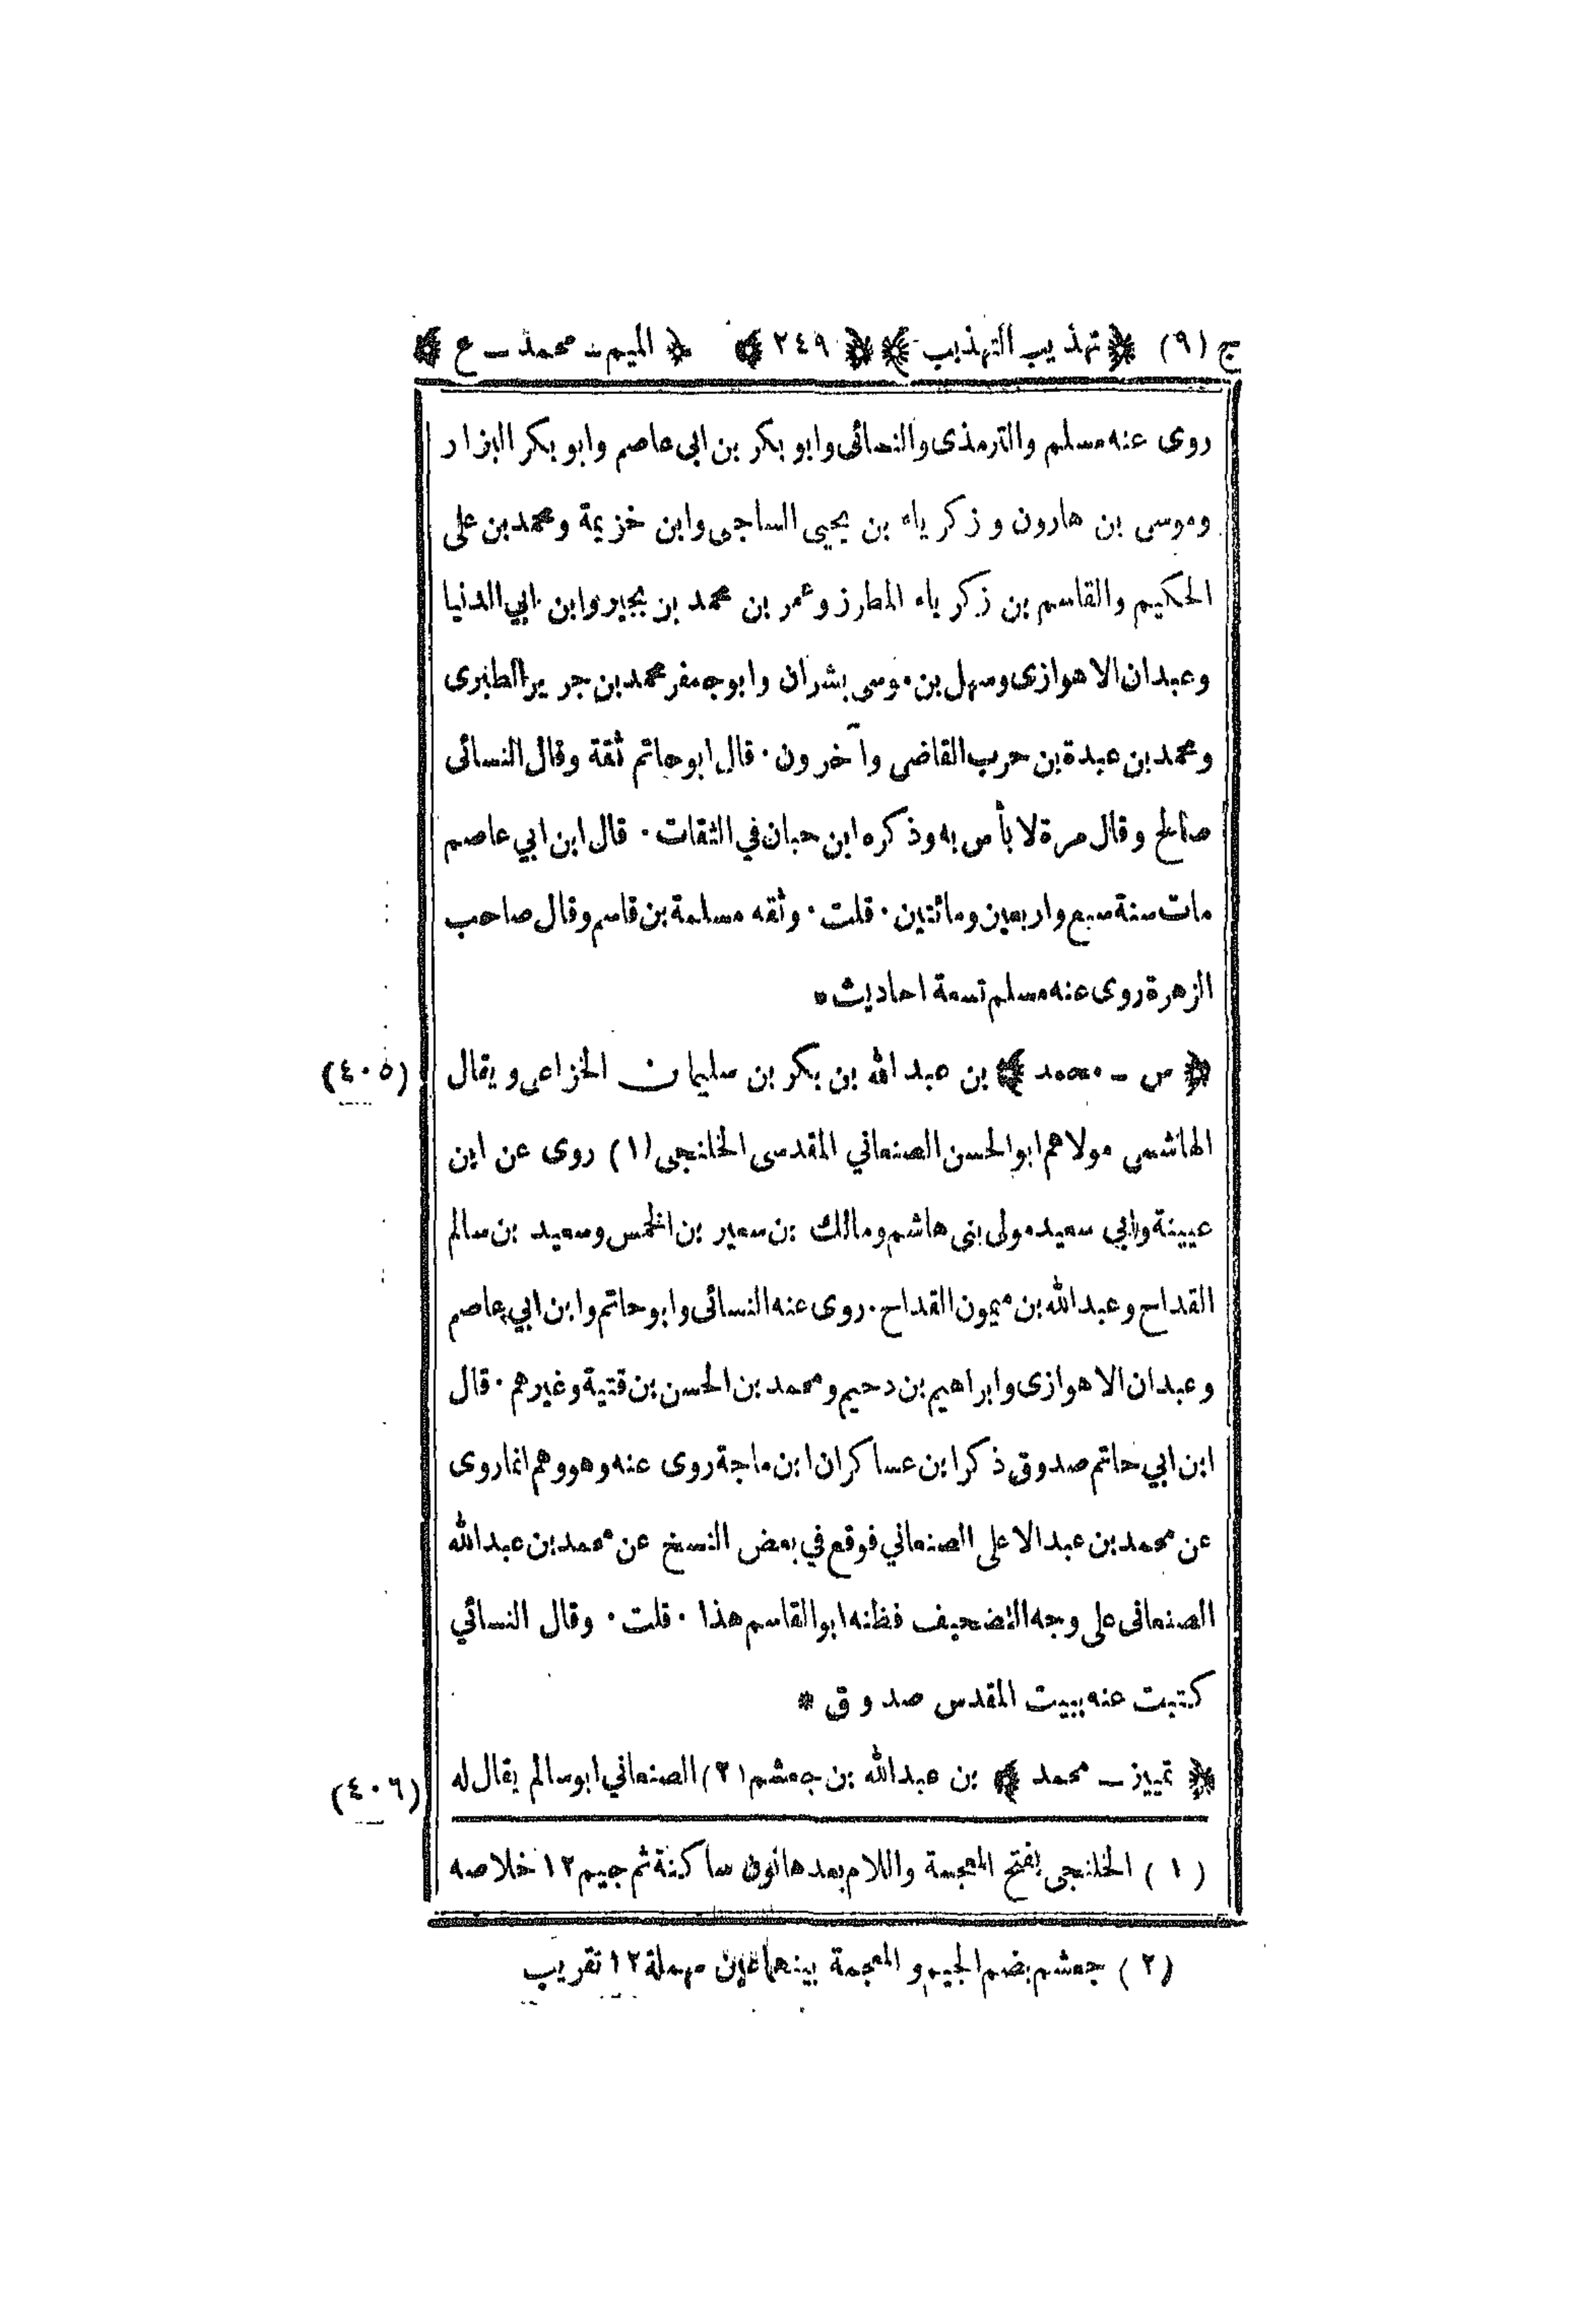 ج (٩) ﴿ تهذيب التهذيب ﴾ ﴿ ٢٤٩ ﴾ ﴿ الميم - محمد - ع ﴾
روى عنه مسلم والترمذى والنسائى وابو بكر بن ابى عاصم وابو بكر البزار
وموسى بن هارون و زكرياء بن يحيى الساجى وابن خزيمة ومحمد بن على
الحكيم والقاسم بن زكرياء المطرز وعمر بن محمد بن بجير وابن ابي الدنيا
وعبدان الاهوازى وسهل بن موسى بشران وابو جعفر محمد بن جرير الطبرى
ومحمد بن عبدة بن حرب القاضى وآخرون · قال ابو حاتم ثقة وقال النسائى
صالح وقال مرة لا بأس به وذكره ابن حبان في الثقات · قال ابن ابي عاصم
مات سنة سبع واربعين ومائتين · قلت · وثقه مسلمة بن قاسم وقال صاحب
الزهرة روى عنه مسلم تسعة احاديث *
﴿ س - محمد ﴾ بن عبد الله بن بكر بن سليمان الخزاعى ويقال (٤٠٥)
الهاشمى مولاهم ابو الحسن الصنعاني المقدسى الخلنجى (١) روى عن ابن
عيينة وابي سعيد مولى بنى هاشم ومالك بن سعير بن الخمس وسعيد بن سالم
القداح وعبد الله بن ميمون القداح · روى عنه النسائى وابو حاتم وابن ابي عاصم
وعبدان الاهوازى وابراهيم بن دحيم ومحمد بن الحسن بن قتيبة وغيرهم · قال
ابن ابي حاتم صدوق ذكر ابن عساكر ان ابن ماجة روى عنه وهو وهم انما روى
عن محمد بن عبد الاعلى الصنعاني فوقع في بعض النسخ عن محمد بن عبد الله
الصنعانى على وجه التضحيف فظنه ابو القاسم هذا · قلت · وقال النسائي
كتبت عنه ببيت المقدس صدوق *
﴿ تمييز - محمد ﴾ بن عبد الله بن جعشم (٢) الصنعاني ابو سالم يقال له (٤٠٦)
(١) الخلنجى بفتح المعجمة واللام بعدها نون ساكنة ثم جيم ١٢ خلاصه
(٢) جعشم بضم الجيم و المعجمة بينهما عين مهملة ١٢ تقريب